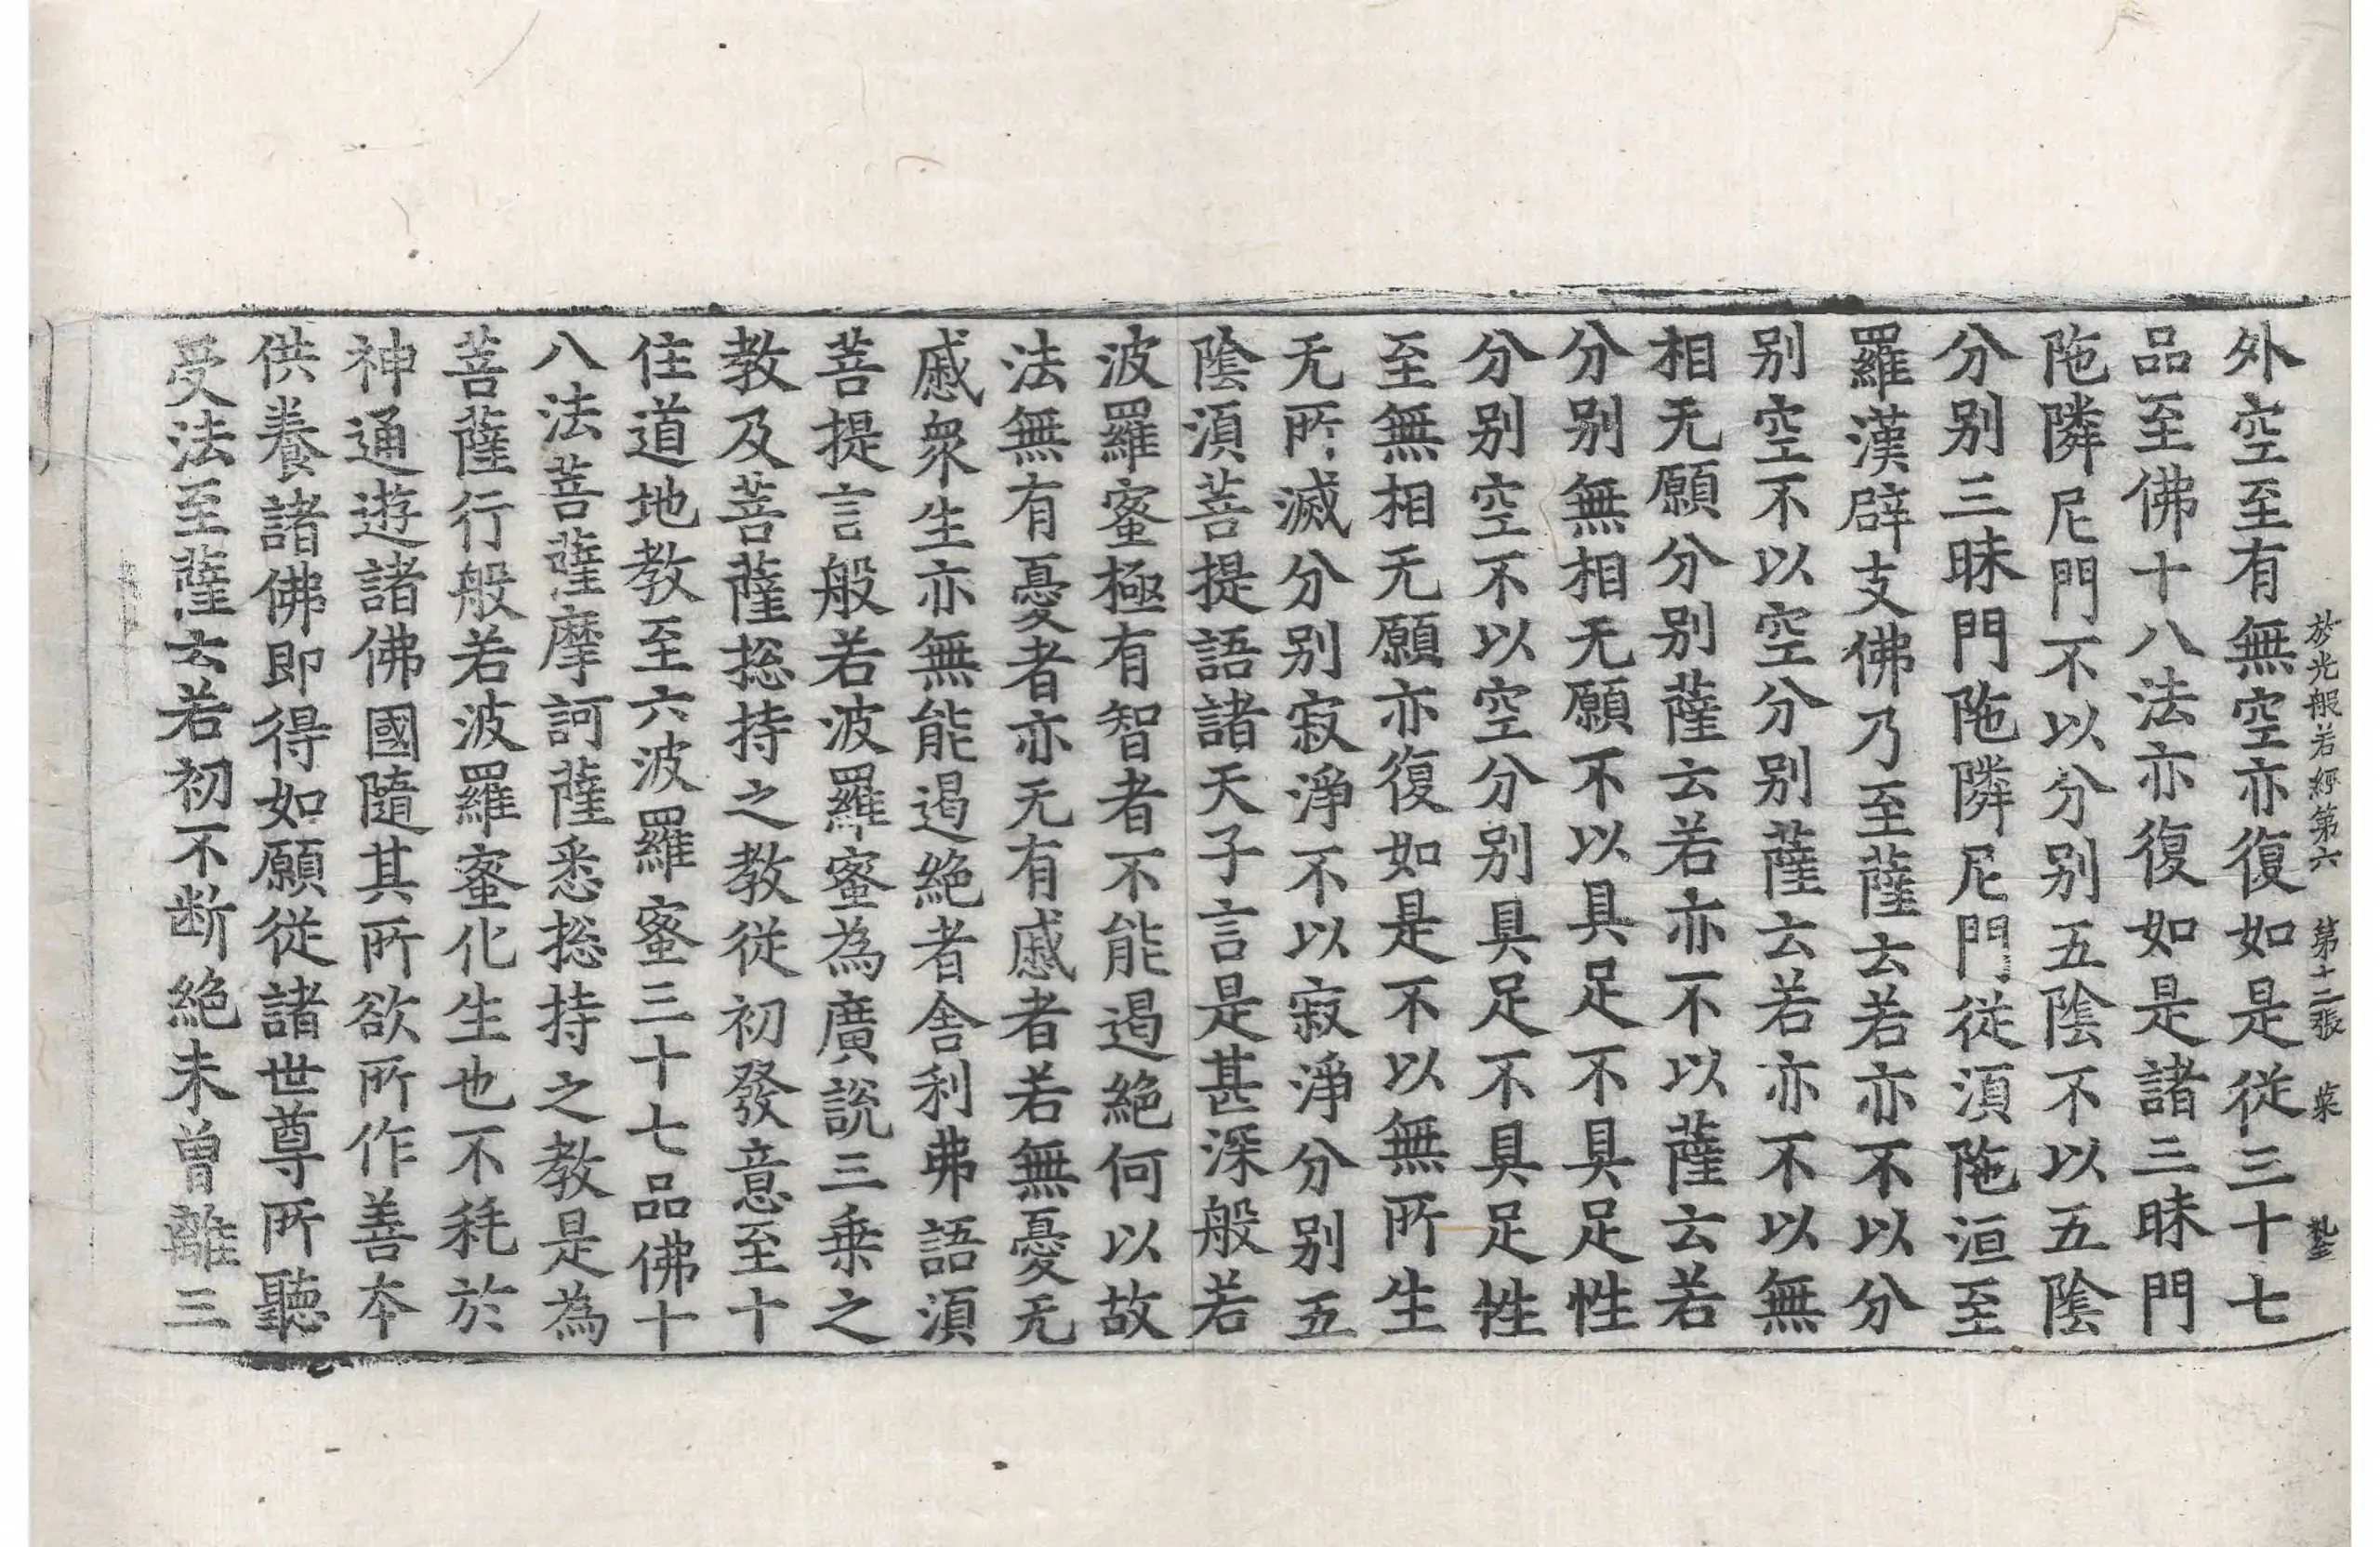 外空至有無空亦復如是從三十七
品至佛十八法亦復如是諸三昧門
陁隣尼門不以分別五陰不以五陰
分別三昧門陁隣尼門從湏陁洹至
羅漢辟支佛乃至薩云若亦不以分
別空不以空分別薩云若亦不以無
相无願分別薩云若亦不以薩云若
分別無相无願不以具足不具足性
分別空不以空分別具足不具足性
至無相无願亦復如是不以無所生
无所滅分別寂淨不以寂淨分別五
陰湏菩提語諸天子言是甚深般若
波羅蜜極有智者不能遏絕何以故
法無有憂者亦无有慼者若無憂无
慼衆生亦無能遏絕者舍利弗語湏
菩提言般若波羅蜜為廣說三乗之
教及菩薩捴持之教從初發意至十
住道地教至六波羅蜜三十七品佛十
八法菩薩摩訶薩悉捴持之教是為
菩薩行般若波羅蜜化生也不秏於
神通遊諸佛國隨其所欲所作善夲
供養諸佛即得如願從諸世尊所聽
受法至薩云若初不断絕未曾離三
放光般若經第六 第十二張 菜